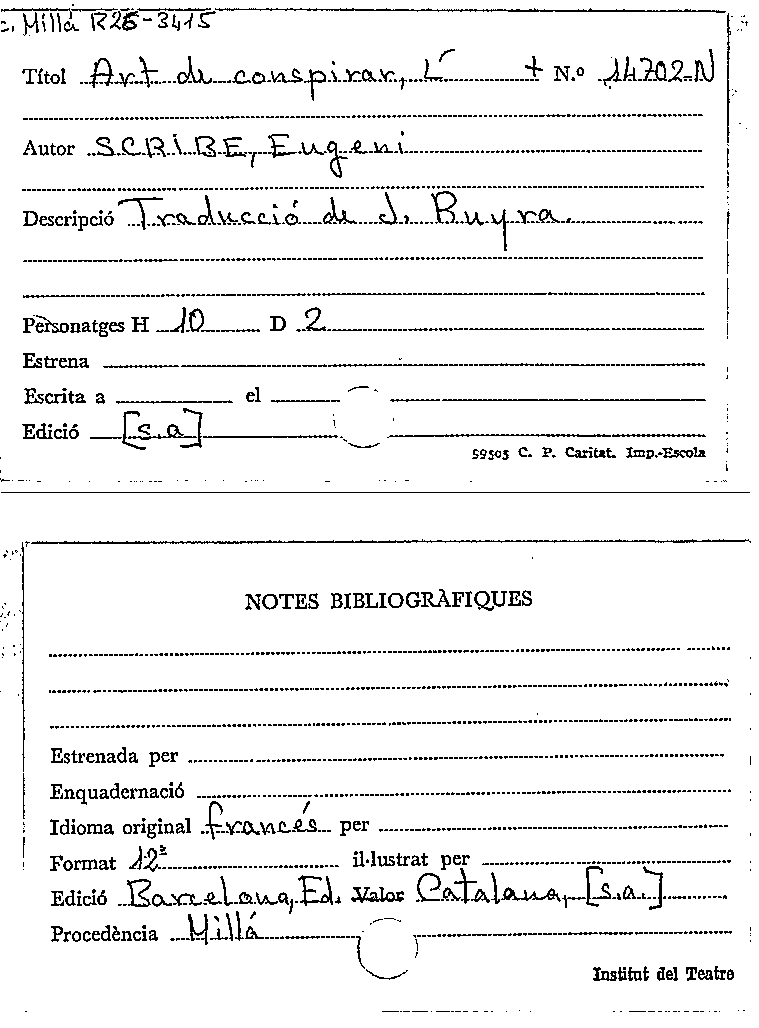 c. Millá R26-3415
Títol Art de conspirar, L' + N.º 14702-N
Autor SCRIBE, Eugeni
Descripció Traducció de J. Ruyra.
Personatges H 10 D 2
Estrena
Escrita a el
Edició [s.a]
59505 C. P. Caritat. Imp.-Escola
NOTES BIBLIOGRÀFIQUES
Estrenada per
Enquadernació
Idioma original francés per
Format 12ª il·lustrat per
Edició Barcelona, Ed. Valor Catalana, [s.a.]
Procedència Millá
Institut del Teatre